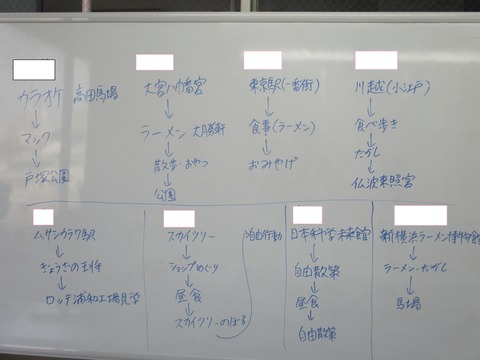 カラオケ 高田馬場
↓
マック
↓
戸塚公園
大宮八幡宮
↓
ラーメン 大勝軒
↓
散歩・おやつ
↓
公園
東京駅(一番街)
↓
食事(ラーメン)
↓
おみやげ
川越(小江戸)
↓
食べ歩き
↓
だがし
↓
仙波東照宮
ムサシウラワ駅
↓
ぎょうざの王将
↓
ロッテ浦和工場見学
スカイツリー
↓
ショップめぐり
↓
昼食
↓
スカイツリーのぼる
自由行動
日本科学未来館
↓
自由散策
↓
昼食
↓
自由散策
新横浜ラーメン博物館
↓
ラーメン・だがし
↓
馬場